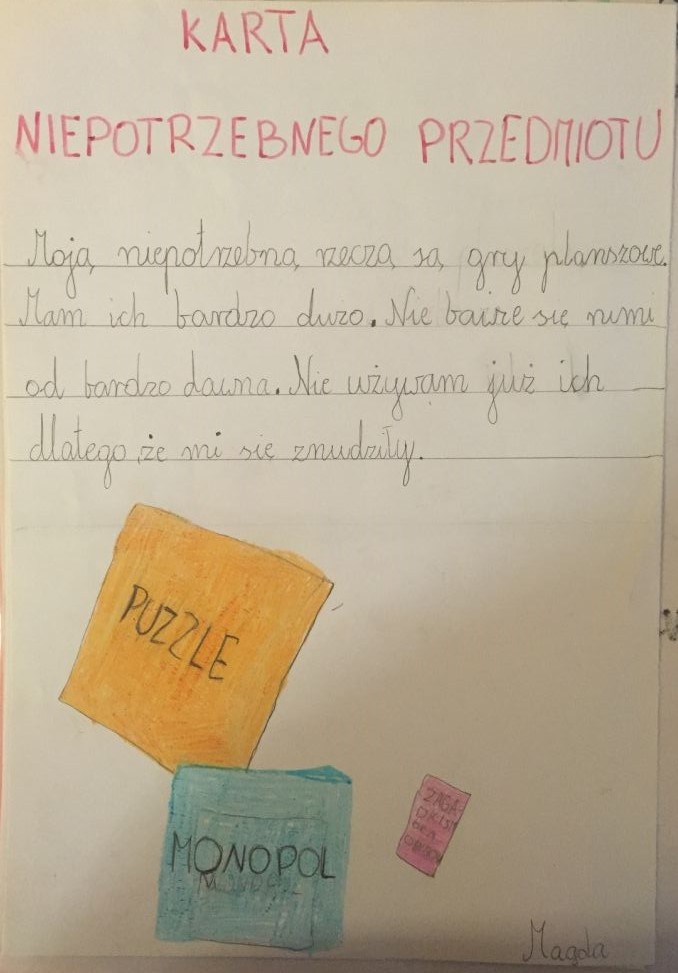 KARTA
NIEPOTRZEBNEGO PRZEDMIOTU
Moją niepotrzebną rzeczą są gry planszowe.
Mam ich bardzo dużo. Nie bawię się nimi
od bardzo dawna. Nie używam już ich
dlatego, że mi się znudziły.
PUZZLE
MONOPOL
ZAGA-
Magda